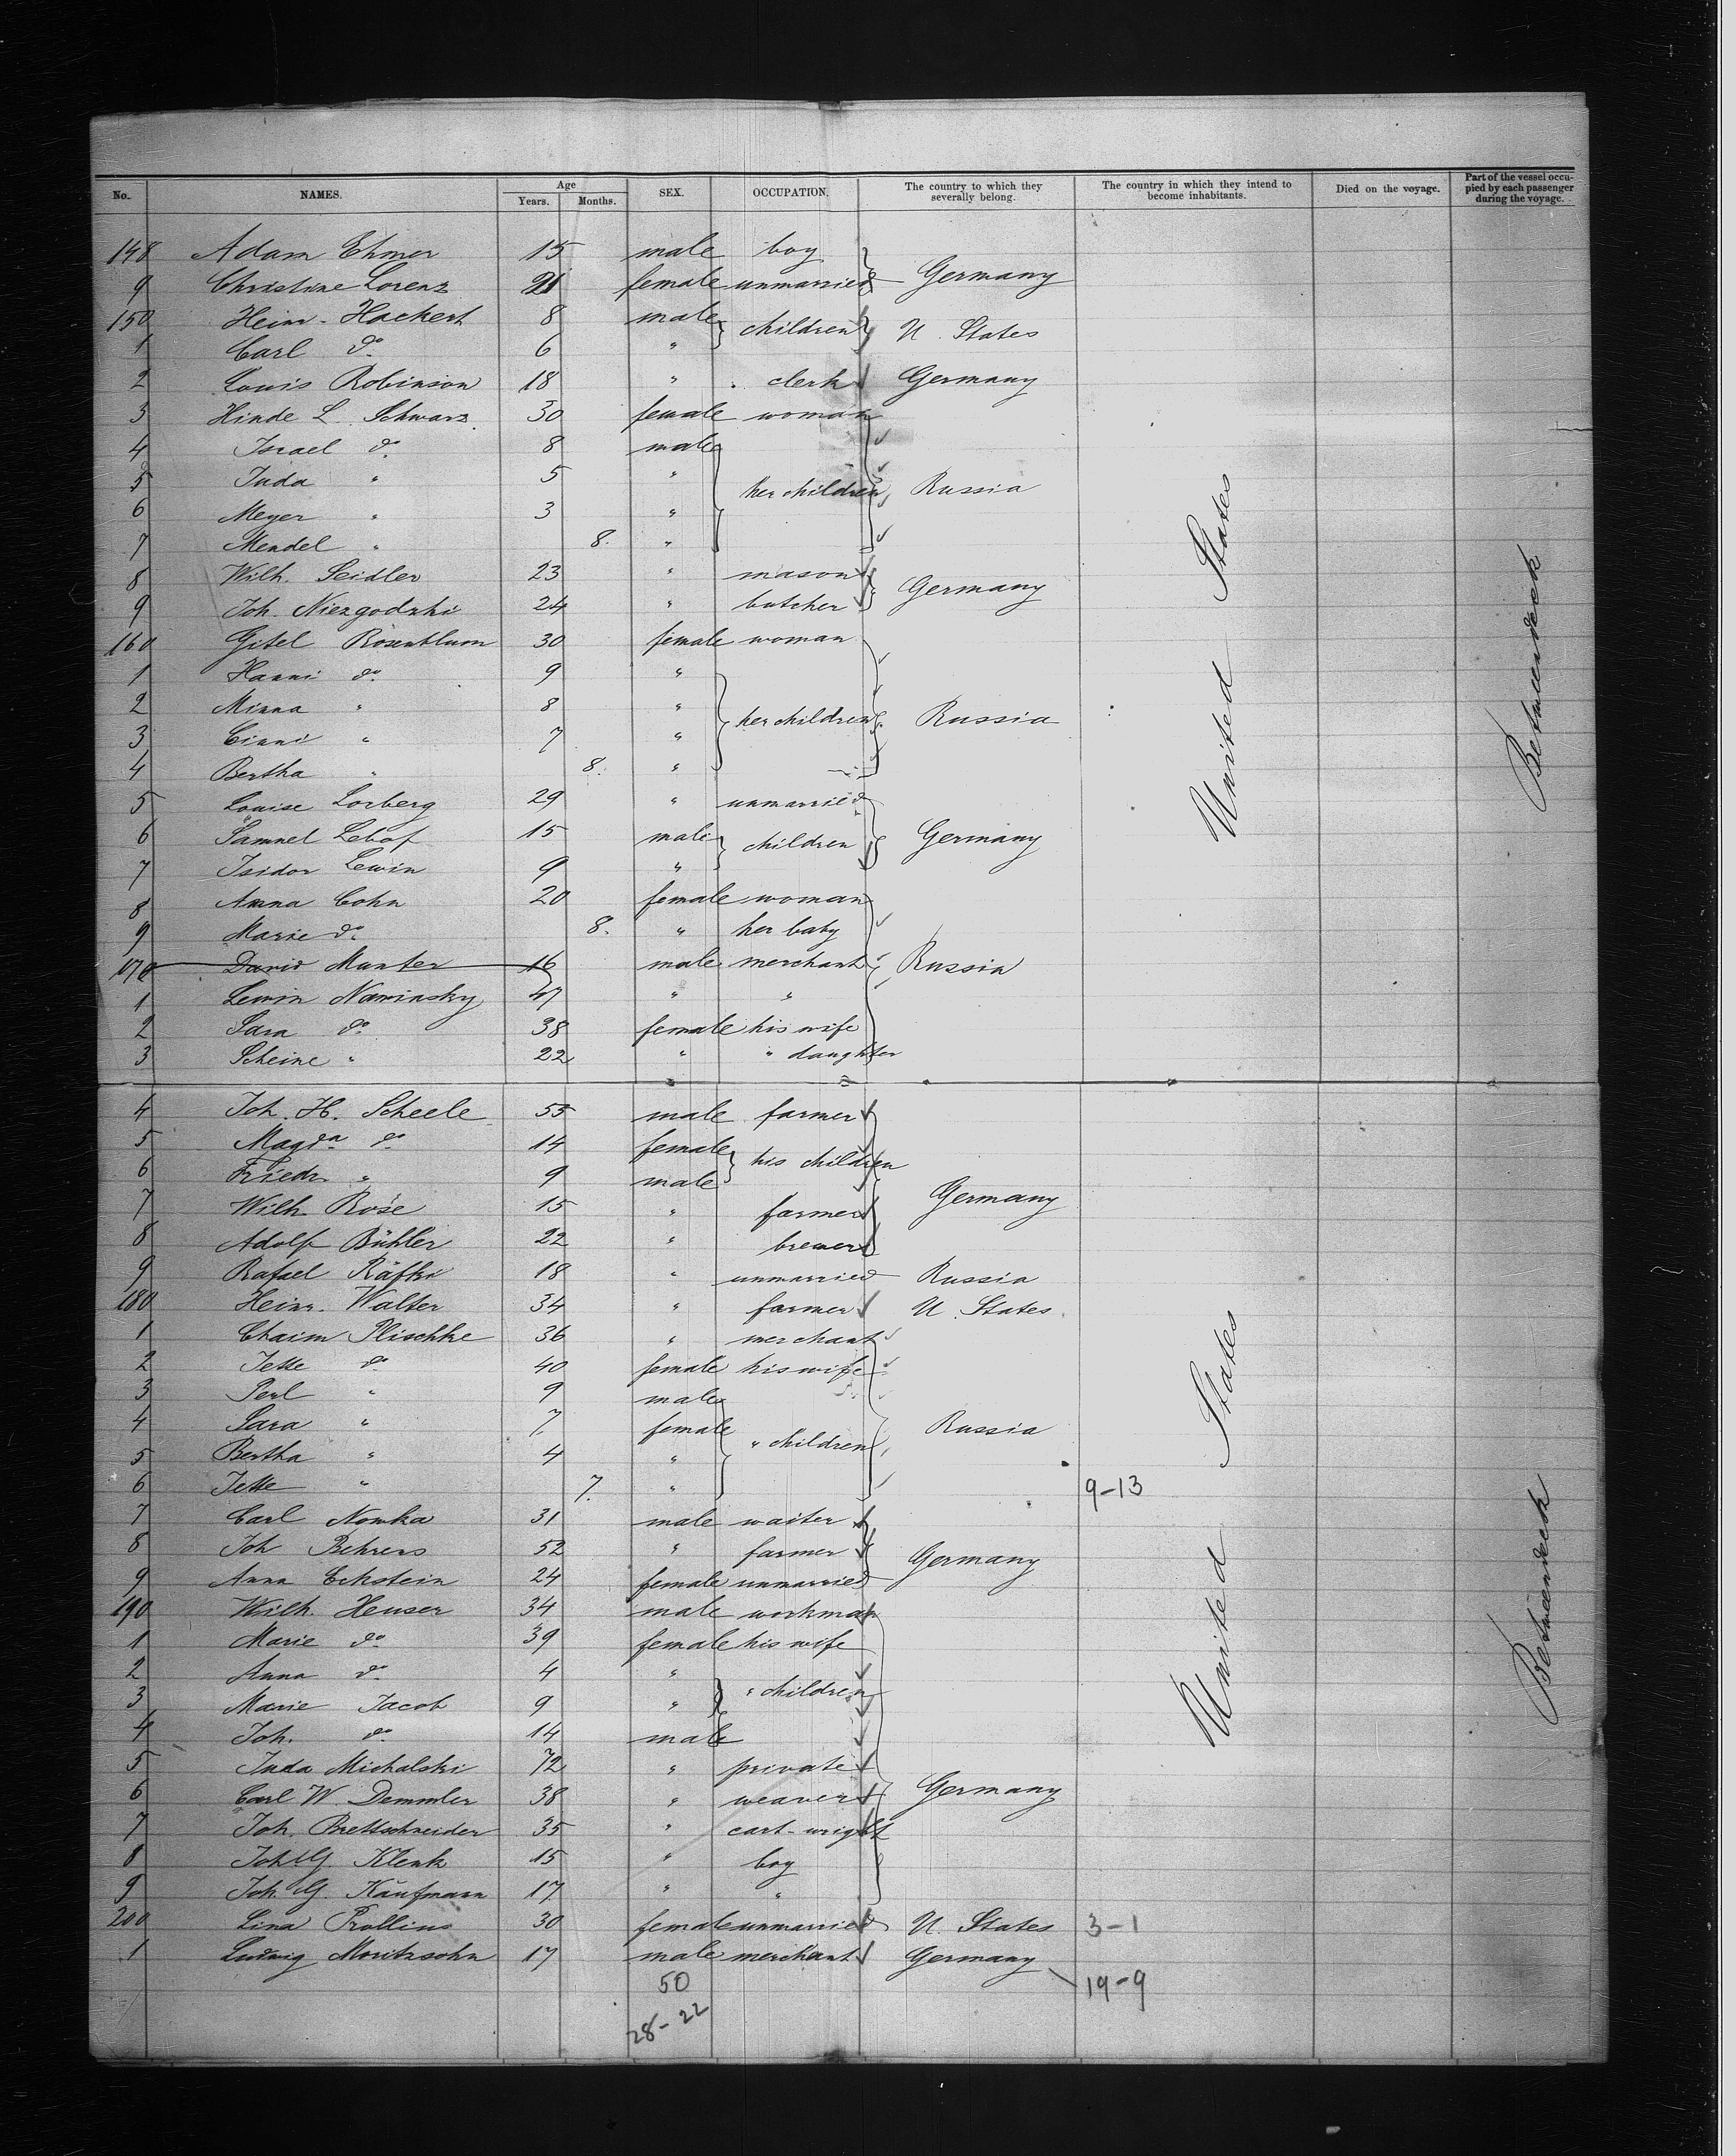 No. NAMES. Age Years. Months. SEX. OCCUPATION. The country to which they severally belong. The country in which they intend to become inhabitants. Died on the voyage. Part of the vessel occupied by each passenger during the voyage.
148 Adam Ehmer 15 male boy
9 Christine Lorenz 21 female unmarried Germany
150 Heinr. Hackert 8 male children U. States
1 Carl do 6 "
2 Louis Robinson 18 " clerk Germany
3 Hinde L. Schwarz 30 female woman
4 Israel do 8 male
5 Juda " 5 " her children Russia
6 Meyer " 3 "
7 Mendel " 8. "
8 Wilh. Seidler 23 " mason Germany
9 Joh. Niezgodzki 24 " butcher
160 Gitel Rosenblum 30 female woman
1 Hanni do 9 "
2 Minna " 8 " her children Russia
3 Cinni " 7 "
4 Bertha " 8. "
5 Louise Lorberg 29 " unmarried
6 Samuel Lebof 15 male children Germany
7 Isidor Lewin 9 "
8 Anna Cohn 20 female woman
9 Marie do 8. " her baby
170 David Munter 16 male merchant Russia
1 Lewin Nawinsky 47 " "
2 Sara do 38 female his wife
3 Scheine " 22 " " daughter
4 Joh. H. Scheele 55 male farmer
5 Magda do 14 female his children
6 Friedr. " 9 male
7 Wilh. Rose 15 " farmer Germany
8 Adolf Bühler 22 " brewer
9 Rafael Räfki 18 " unmarried Russia
180 Heinr. Walter 34 " farmer U. States
1 Chaim Plischke 36 " merchant
2 Jette do 40 female his wife
3 Perl " 9 male
4 Sara " 7 female " children Russia
5 Bertha " 4 "
6 Jette " 7. " 9-13
7 Carl Nowka 31 male waiter
8 Joh Behrens 52 " farmer Germany
9 Anna Eckstein 24 female unmarried
190 Wilh. Heuser 34 male workman
1 Marie do 39 female his wife
2 Anna do 4 " " children
3 Marie Jacob 9 "
4 Joh. do 14 male
5 Juda Michalski 72 " private
6 Carl W. Demmler 38 " weaver Germany
7 Joh. Brettschneider 35 " cart-wright
8 Joh G. Klenk 15 " boy
9 Joh. G. Kaufmann 17 " "
200 Lina Prollius 30 female unmarried U. States 3-1
1 Ludwig Moritzsohn 17 male merchant Germany
50 19-9
28-22
United States
Betweendeck
United States
Betweendeck